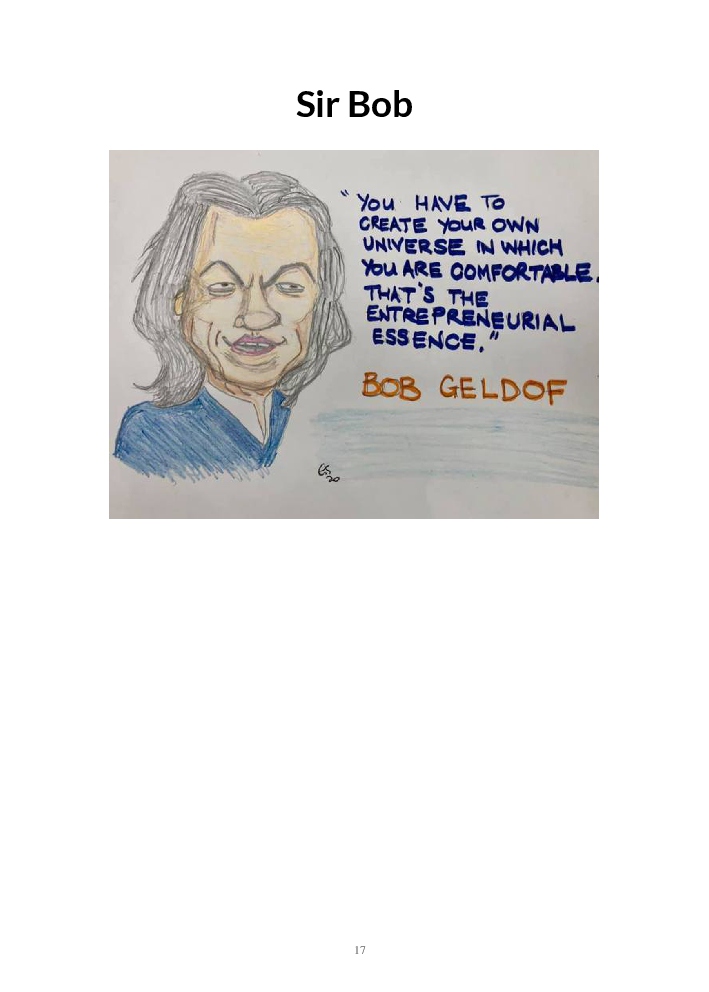 Sir Bob
“YOU HAVE TO
CREATE YOUR OWN
UNIVERSE IN WHICH
YOU ARE COMFORTABLE.
THAT'S THE
ENTREPRENEURIAL
ESSENCE.”
BOB GELDOF
17